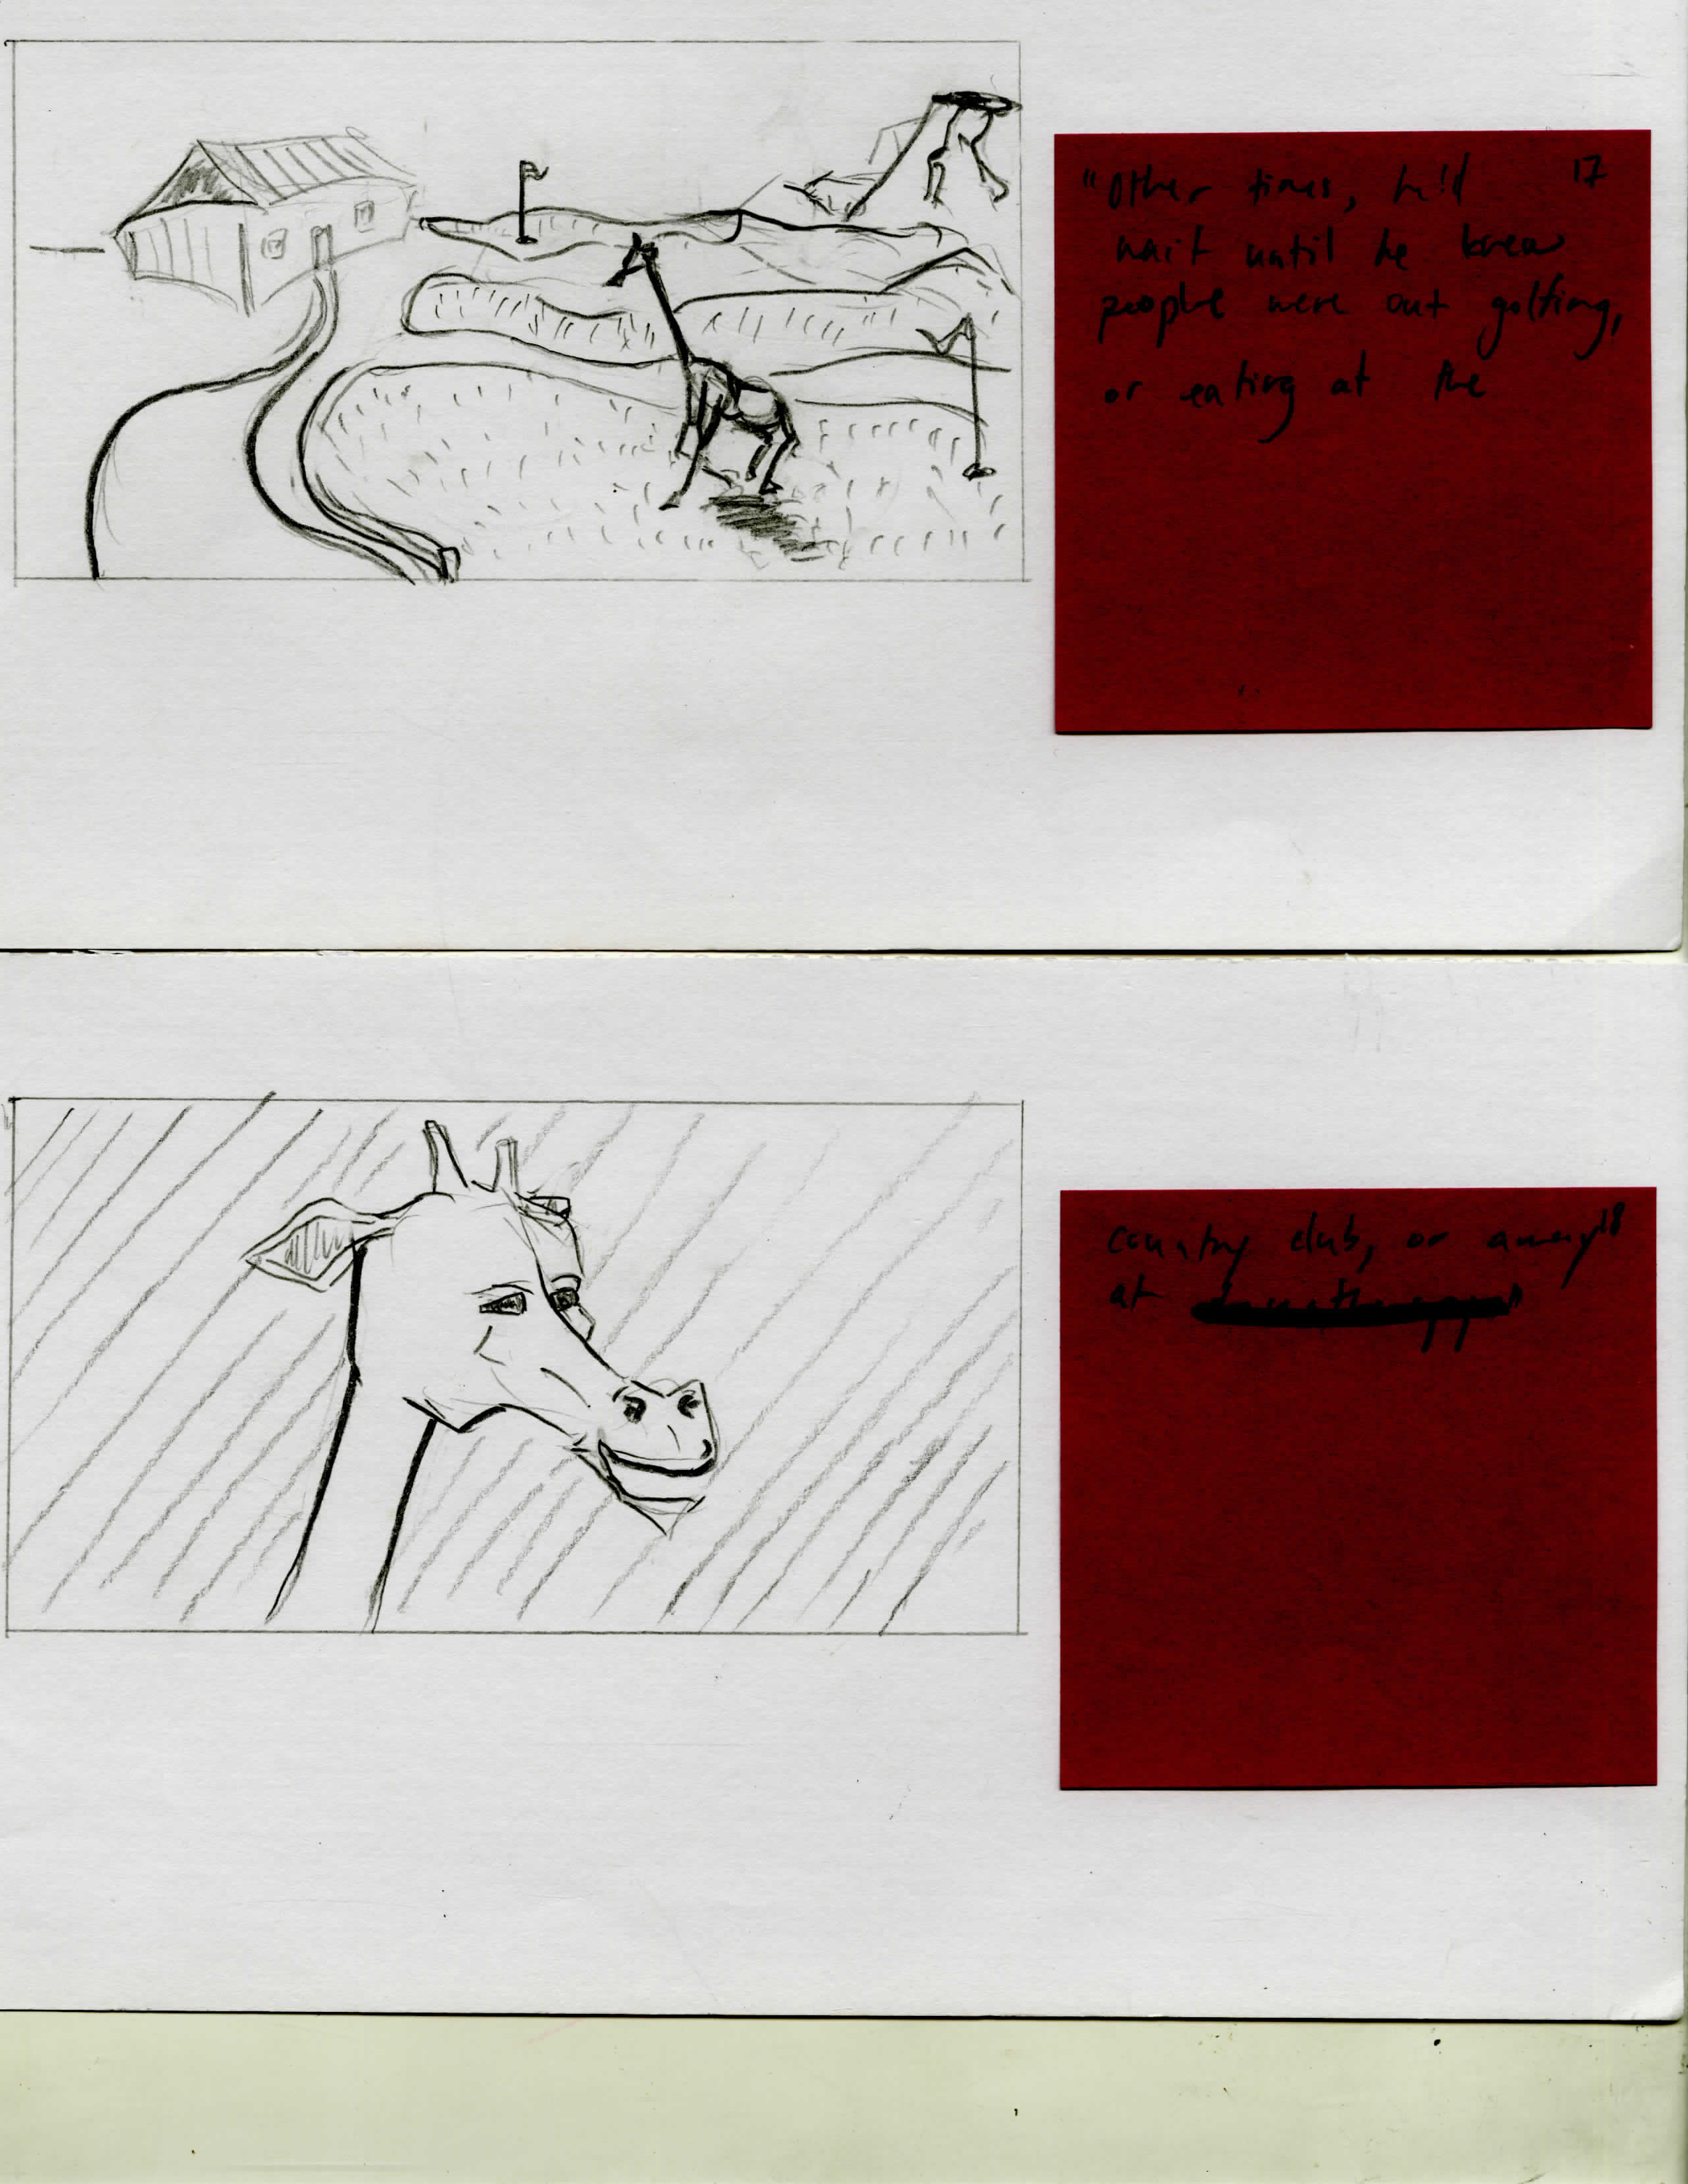 "Other times, he'd 17
wait until he knew
people were out golfing,
or eating at the
country club, or away 18
at